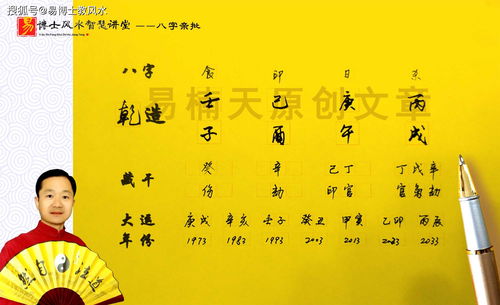 搜狐号@易博士教风水
易 博士风水智慧讲堂 ——八字亲批
八字 食 印 日 杀
乾造 壬 己 庚 丙
子 酉 午 戌
易楠天原创文章
藏干 癸 辛 己丁 丁戊辛
伤 劫 印官 官枭劫
大运 庚戌 辛亥 壬子 癸丑 甲寅 乙卯 丙辰
年份 1973 1983 1993 2003 2013 2023 2033